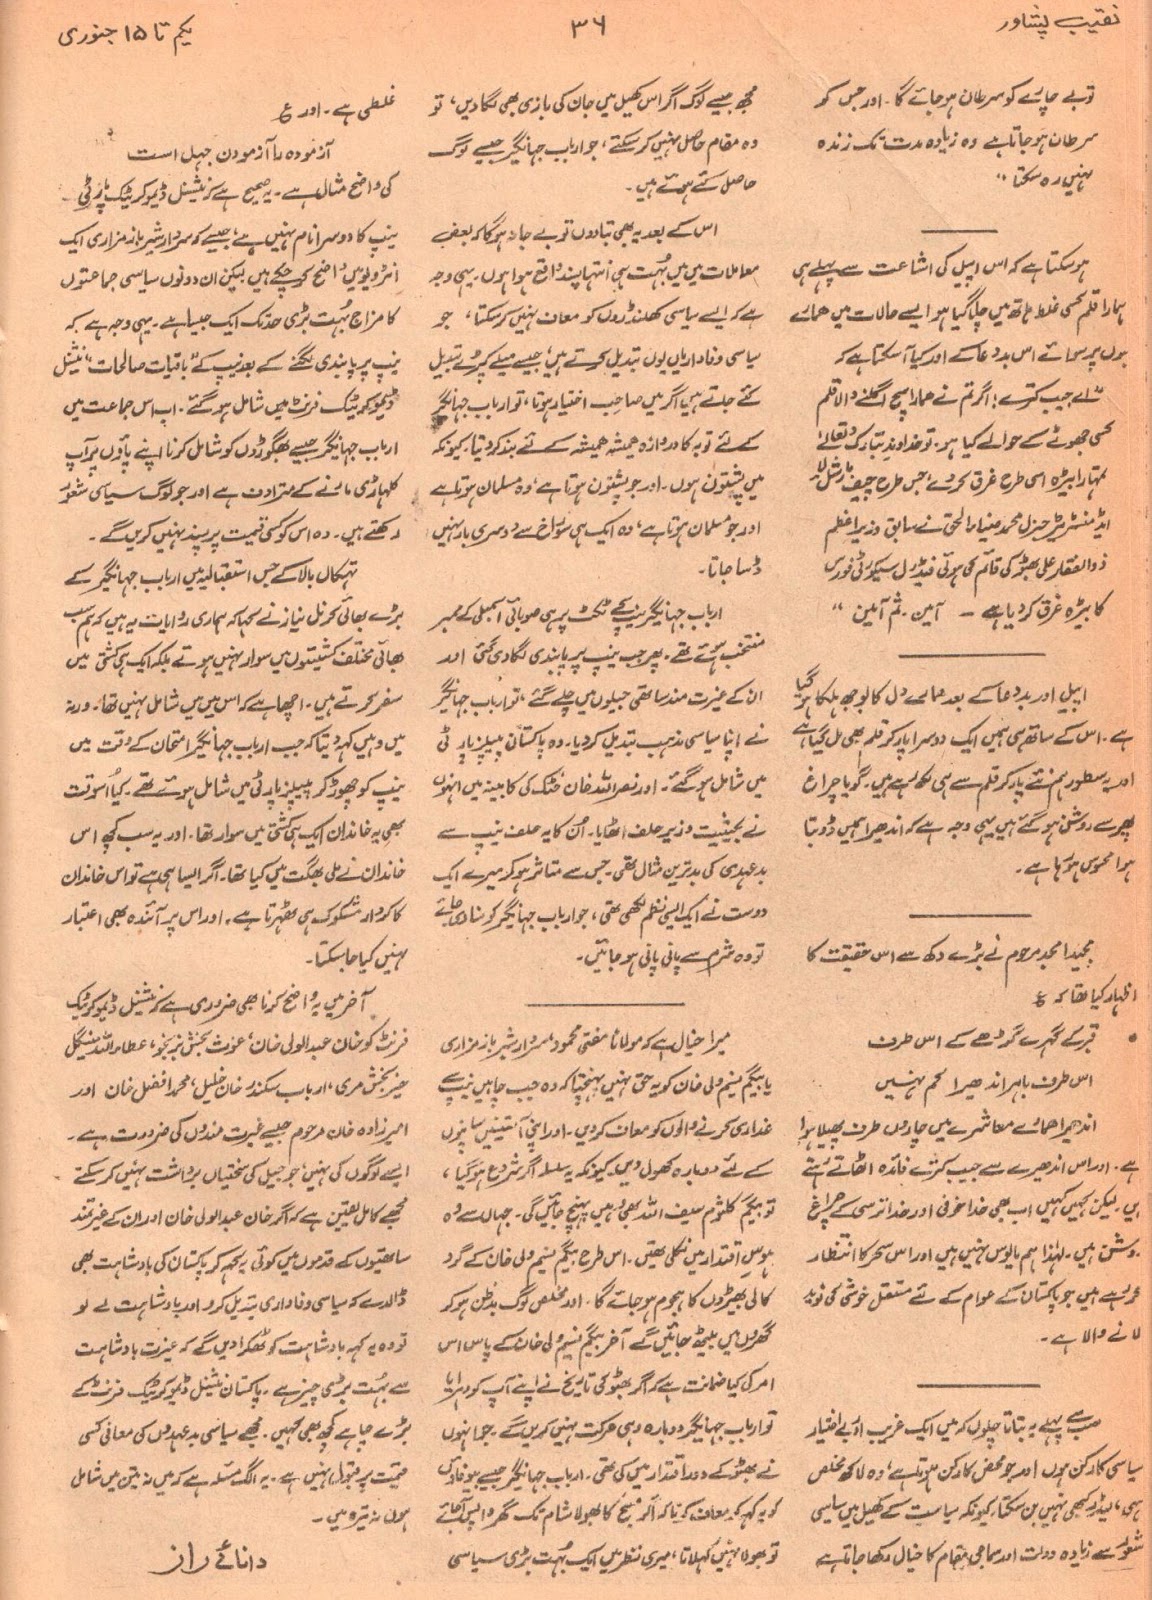 نقیب پشاور
۳۶
یکم تا ۱۵ جنوری
تو بے چارے کو سرطان ہو جائے گا۔ اور جس کو
سرطان ہو جاتا ہے وہ زیادہ مدت تک زندہ
نہیں رہ سکتا"
ہو سکتا ہے کہ اس اپیل کی اشاعت سے پہلے ہی
ہمارا قلم کسی غلط ہاتھ میں چلا گیا ہو ایسے حالات میں ہمارے
لبوں پر سوائے اس بددعا کے اور کیا آ سکتا ہے کہ
"اے جیب کترے! اگر تم نے ہمارا سچ اگلنے والا قلم
کسی جھوٹے کے حوالے کیا ہو۔ تو خداوند تبارک و تعالیٰ
تمہارا بیڑہ اسی طرح غرق کر دے، جس طرح چیف مارشل لا
ایڈمنسٹریٹر جنرل محمد ضیاء الحق نے سابق وزیر اعظم
ذوالفقار علی بھٹو کی قائم کی ہوئی فیڈرل سیکورٹی فورس
کا بیڑہ غرق کر دیا ہے — آمین ثم آمین"
اپیل اور بددعا کے بعد ہمارے دل کا بوجھ ہلکا ہو گیا
ہے۔ اس کے ساتھ ہی ہمیں ایک دوسرا پارکر قلم بھی مل گیا ہے
اور یہ سطور ہم نئے پارکر قلم سے ہی لکھ رہے ہیں۔ گویا چراغ
پھر سے روشن ہو گئے ہیں یہی وجہ ہے کہ اندھیرا ہمیں ڈوبتا
ہوا محسوس ہو رہا ہے۔
مجید امجد مرحوم نے بڑے دکھ سے اس حقیقت کا
اظہار کیا تھا کہ ؏
قبر کے گہرے گڑھے کے اس طرف
اس طرف باہر اندھیرا کم نہیں
اندھیرا ہمارے معاشرے میں چاروں طرف پھیلا ہوا
ہے۔ اور اس اندھیرے سے جیب کترے فائدہ اٹھاتے رہتے
ہیں۔ لیکن کہیں کہیں اب بھی خدا خوفی اور خدا ترسی کے چراغ
روشن ہیں۔ لہٰذا ہم مایوس نہیں ہیں اور اس سحر کا انتظار
کر رہے ہیں جو پاکستان کے عوام کے لئے مستقل خوشی کی نوید
لانے والا ہے۔
سب سے پہلے یہ بتاتا چلوں کہ میں ایک غریب اور بے اختیار
سیاسی کارکن ہوں اور جو محض کارکن ہوتا ہے، وہ لاکھ مخلص
سہی، لیڈر کبھی نہیں بن سکتا، کیونکہ سیاست کے کھیل میں سیاسی
شعور سے زیادہ دولت اور سماجی مقام کا خیال رکھا جاتا ہے
مجھ جیسے لوگ اگر اس کھیل میں جان کی بازی بھی لگا دیں، تو
وہ مقام حاصل نہیں کر سکتے، جو ارباب جہانگیر جیسے لوگ
حاصل کئے ہوئے ہیں۔
اس کے بعد یہ بھی بتا دوں تو بے جا نہ ہوگا کہ بعض
معاملات میں میں بہت ہی انتہا پسند واقع ہوا ہوں۔ یہی وجہ
ہے کہ ایسے سیاسی کھلنڈروں کو معاف نہیں کر سکتا، جو
سیاسی وفاداریاں یوں تبدیل کرتے ہیں، جیسے میلے کپڑے تبدیل
کئے جاتے ہیں اگر میں صاحب اختیار ہوتا، تو ارباب جہانگیر
کے لئے توبہ کا دروازہ ہمیشہ ہمیشہ کے لئے بند کر دیتا۔ کیونکہ
میں پشتون ہوں۔ اور جو پشتون ہوتا ہے، وہ مسلمان ہوتا ہے
اور جو مسلمان ہوتا ہے، وہ ایک ہی سوراخ سے دوسری بار نہیں
ڈسا جاتا۔
ارباب جہانگیر نیپ کے ٹکٹ پر ہی صوبائی اسمبلی کے ممبر
منتخب ہوئے تھے۔ پھر جب نیپ پر پابندی لگا دی گئی اور
ان کے غیرت مند ساتھی جیلوں میں چلے گئے، تو ارباب جہانگیر
نے اپنا سیاسی مذہب تبدیل کر دیا۔ وہ پاکستان پیپلز پارٹی
میں شامل ہو گئے۔ اور نصراللہ خان خٹک کی کابینہ میں انہوں
نے بحیثیت وزیر حلف اٹھایا۔ اُن کا یہ حلف نیپ سے
بدعہدی کی بدترین مثال تھی۔ جس سے متاثر ہو کر میرے ایک
دوست نے ایک ایسی نظم لکھی تھی، جو ارباب جہانگیر کو سنا دی جائے
تو وہ شرم سے پانی پانی ہو جائیں۔
میرا خیال ہے کہ مولانا مفتی محمود، سردار شیر باز مزاری
یا بیگم نسیم ولی خان کو یہ حق نہیں پہنچتا کہ وہ جب چاہیں نیپ سے
غداری کرنے والوں کو معاف کر دیں۔ اور اپنی آستینیں سانپوں
کے لئے دوبارہ کھول دیں۔ کیونکہ یہ سلسلہ اگر شروع ہو گیا،
تو بیگم کلثوم سیف اللہ بھی وہیں پہنچ جائیں گی۔ جہاں سے وہ
ہوسِ اقتدار میں نکلی تھیں۔ اس طرح بیگم نسیم ولی خان کے گرد
کالی بھیڑوں کا ہجوم ہو جائے گا۔ اور مخلص لوگ بدظن ہو کر
گھروں میں بیٹھ جائیں گے آخر بیگم نسیم ولی خان کے پاس اس
امر کی کیا ضمانت ہے کہ اگر بھٹو کی تاریخ نے اپنے آپ کو دہرایا
تو ارباب جہانگیر دوبارہ وہی حرکت نہیں کریں گے۔ جو انہوں
نے بھٹو کے دور اقتدار میں کی تھی۔ ارباب جہانگیر جیسے بیوفاؤں
کو یہ کہہ کر معاف کرنا کہ اگر صبح کا بھولا شام تک گھر واپس آ جائے
تو بھولا نہیں کہلاتا، میری نظر میں ایک بہت بڑی سیاسی
غلطی ہے۔ اور ؏
آزمودہ را آزمودن جہل است
کی واضح مثال ہے۔ یہ صحیح ہے کہ نیشنل ڈیموکریٹک پارٹی
نیپ کا دوسرا نام نہیں ہے، جیسے کہ سردار شیر باز مزاری ایک
انٹرویو میں واضح کر چکے ہیں۔ لیکن ان دونوں سیاسی جماعتوں
کا مزاج بہت بڑی حد تک ایک جیسا ہے۔ یہی وجہ ہے کہ
نیپ پر پابندی لگنے کے بعد نیپ کے "باقیات صالحات" نیشنل
ڈیموکریٹک فرنٹ میں شامل ہو گئے۔ اب اس جماعت میں
ارباب جہانگیر جیسے بھگوڑوں کو شامل کرنا اپنے پاؤں پر آپ
کلہاڑی مارنے کے مترادف ہے اور جو لوگ سیاسی شعور
رکھتے ہیں۔ وہ اس کو کسی قیمت پر پسند نہیں کریں گے۔
تہکال بالا کے جس استقبالیہ میں ارباب جہانگیر کے
بڑے بھائی کرنل نیاز نے کہا کہ ہماری روایات یہ ہیں کہ ہم سب
بھائی مختلف کشتیوں میں سوار نہیں ہوتے بلکہ ایک ہی کشتی میں
سفر کرتے ہیں۔ اچھا ہے کہ اس میں میں شامل نہیں تھا۔ ورنہ
میں وہیں کہہ دیتا کہ جب ارباب جہانگیر امتحان کے وقت میں
نیپ کو چھوڑ کر پیپلز پارٹی میں شامل ہوئے تھے۔ کیا اُسوقت
بھی یہ خاندان ایک ہی کشتی میں سوار تھا۔ اور یہ سب کچھ اس
خاندان نے ملی بھگت میں کیا تھا۔ اگر ایسا ہی ہے تو اس خاندان
کا کردار مشکوک ہی ٹھہرتا ہے۔ اور اس پر آئندہ بھی اعتبار
نہیں کیا جا سکتا۔
آخر میں یہ واضح کرنا بھی ضروری ہے کہ نیشنل ڈیموکریٹک
فرنٹ کو خان عبدالولی خان، غوث بخش بزنجو، عطاءاللہ مینگل
خیر بخش مری، ارباب سکندر خان خلیل، محمد افضل خان اور
امیر زادہ خان مرحوم جیسے غیرت مندوں کی ضرورت ہے۔
ایسے لوگوں کی نہیں، جو جیل کی سختیاں برداشت نہیں کر سکتے
مجھے کامل یقین ہے کہ اگر خان عبدالولی خان اور ان کے غیرتمند
ساتھیوں کے قدموں میں کوئی یہ کہہ کر پاکستان کی بادشاہت بھی
ڈال دے کہ سیاسی وفاداری تبدیل کرو اور بادشاہت لے لو
تو وہ یہ کہہ بادشاہت کو ٹھکرا دیں گے کہ غیرت بادشاہت
سے بہت بڑی چیز ہے۔ پاکستان نیشنل ڈیموکریٹک فرنٹ کے
بڑے چاہے کچھ بھی کہیں۔ مجھے سیاسی بدعہدوں کی معافی کسی
قیمت پر قبول نہیں ہے۔ یہ الگ مسئلہ ہے کہ میں نہ تین میں شامل
ہوں نہ تیرہ میں۔
دانائے راز